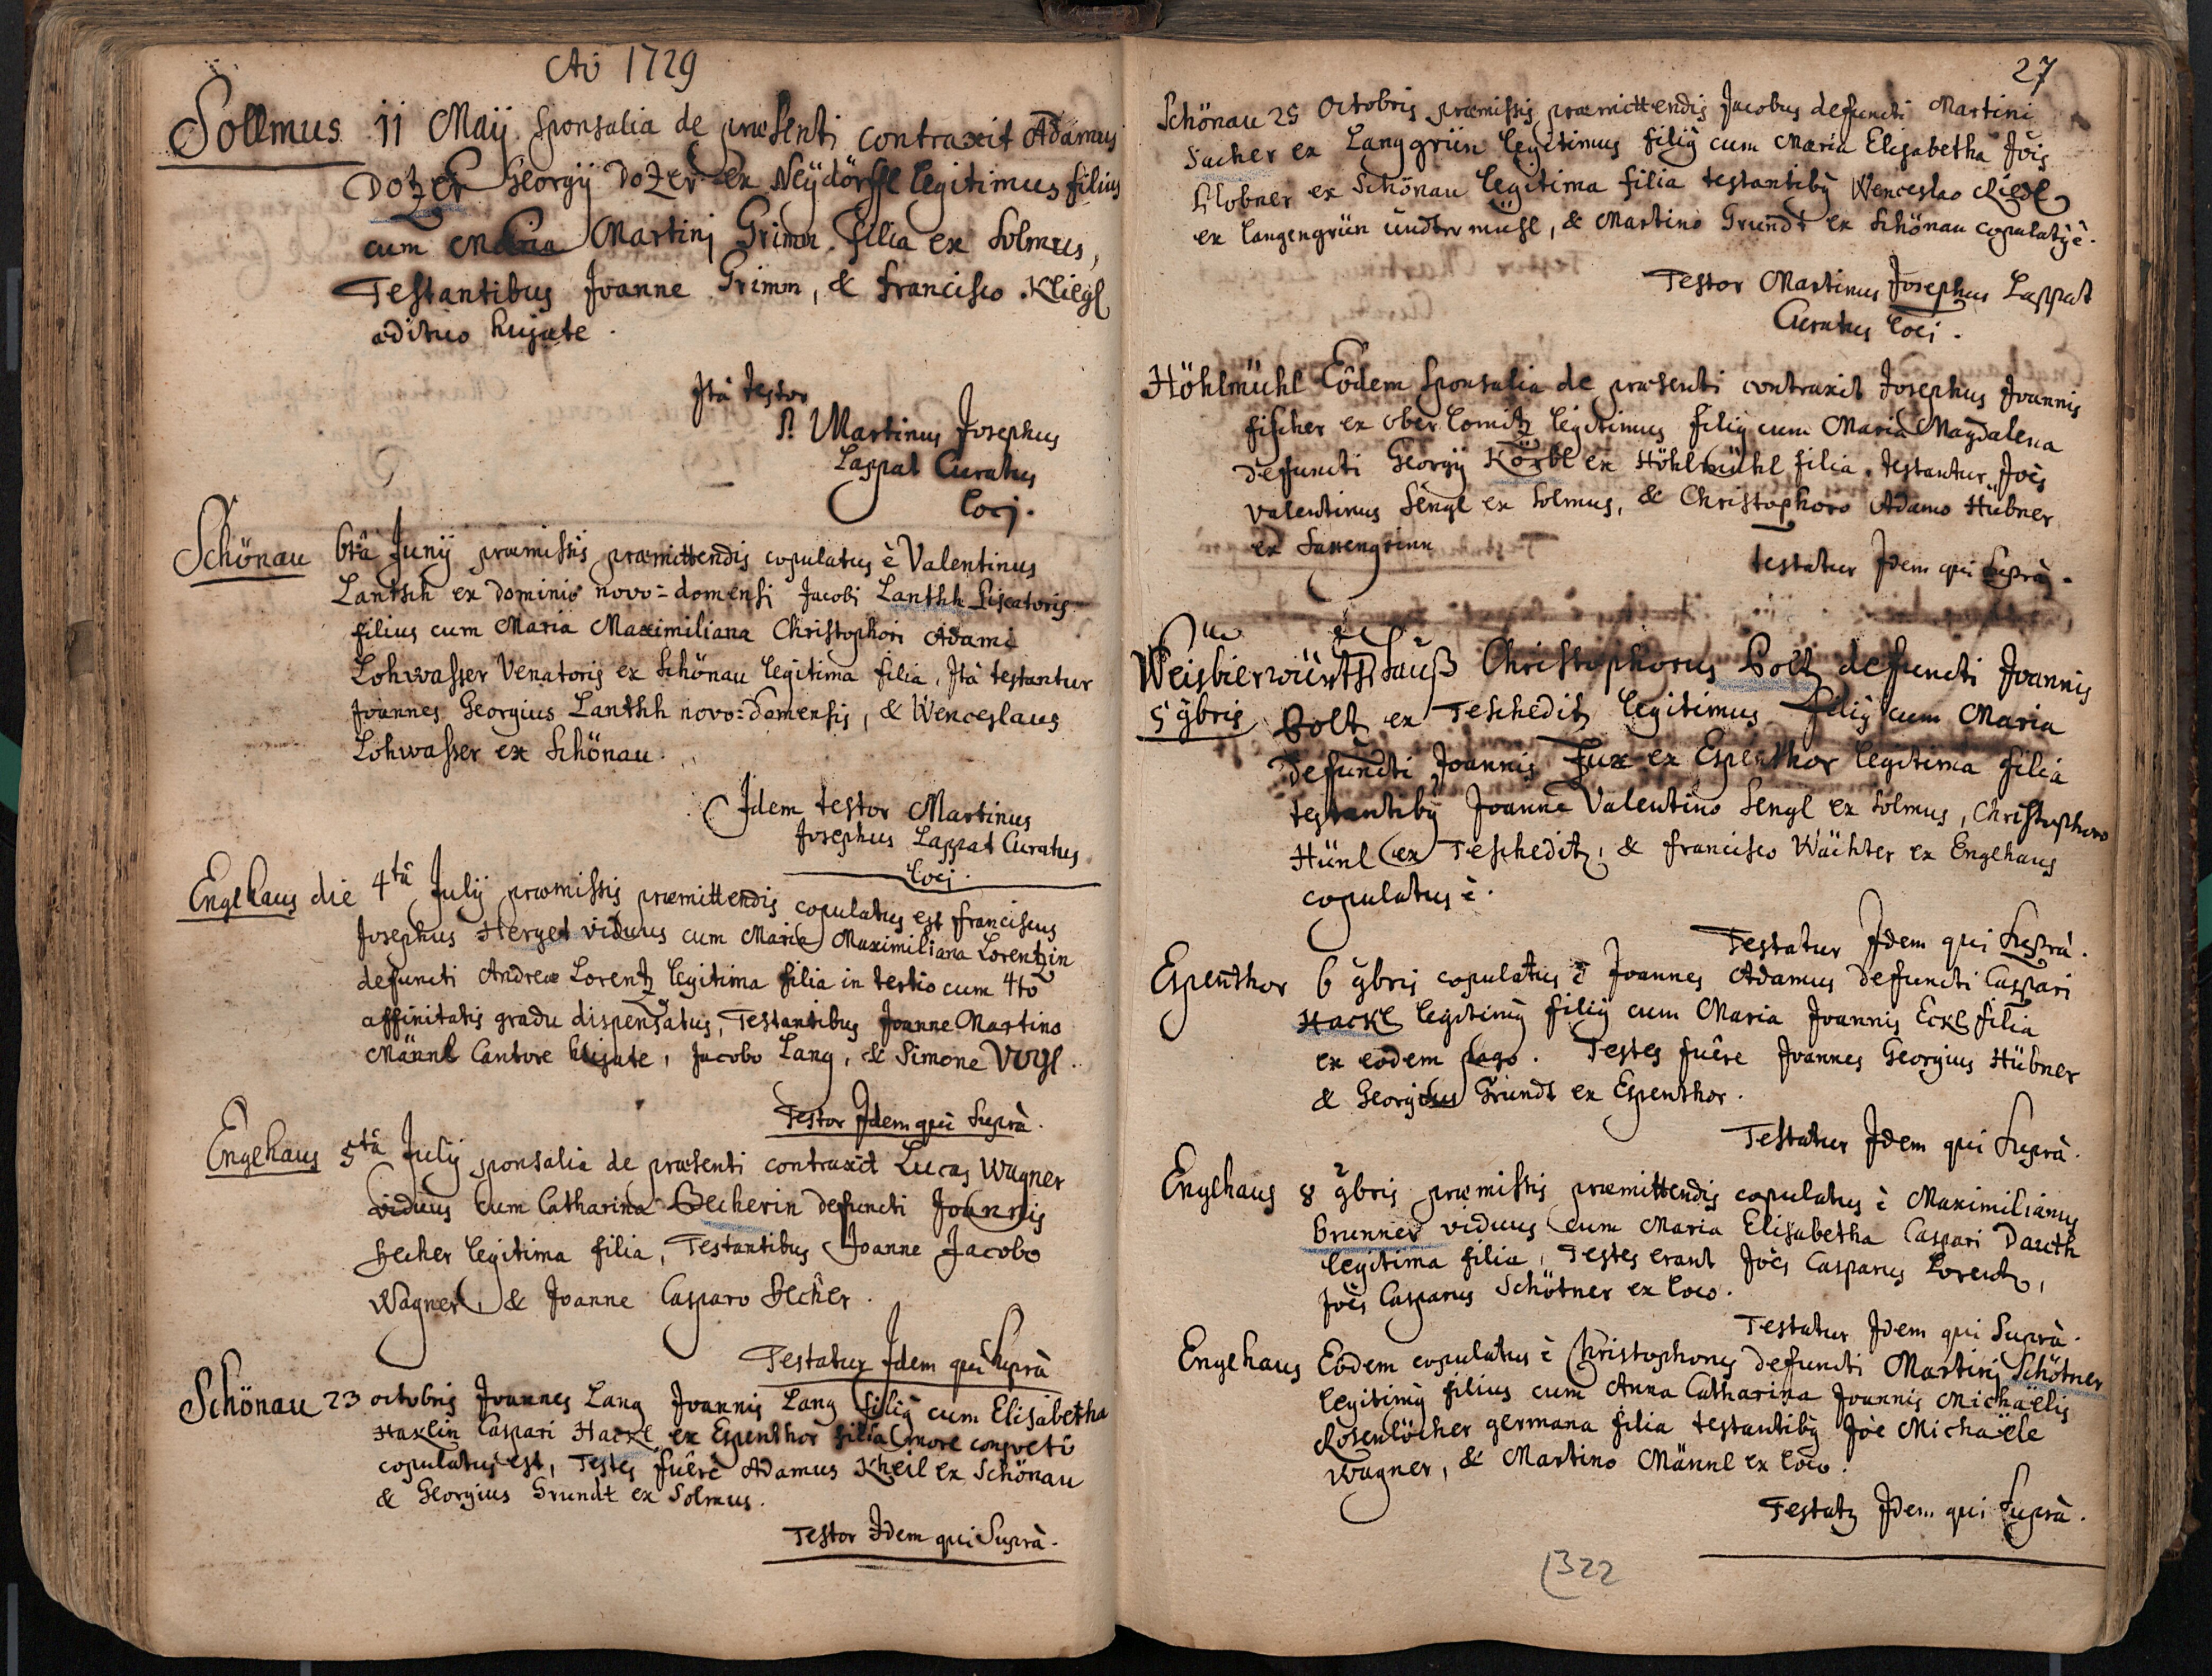 Aõ 1729
Sollmus 11 Maij sponsalia de præsenti contraxit Adamus
Dozer Georgij Dozer ex Neydörffl legitimus filius
cum Maria Martinj Grimm filia ex Solmus,
Testantibus Joanne Grimm, & Francisco Kliegl
ædituo hujate.
Jtà testor
P. Martinus Josephus
Lappat Curatus
locj.
Schönau 6tâ Junij præmissis præmittendis copulatus ê Valentinus
Lantsch ex dominio novo=domensi Jacobi Lantsch Piscatoris
filius cum Maria Maximiliana Christophori Adami
Lohwasser Venatoris ex Schönau legitima filia, Jtà testantur
Joannes Georgius Lantsch novo=domensis, & Wenceslaus
Lohwasser ex Schönau.
Jdem testor Martinus
Josephus Lappat Curatus
locj.
Englhaus die 4tâ Julij præmissis præmittendis copulatus est Franciscus
Josephus Herget viduus cum Maria Maximiliana Lorentzin
defuncti Andreæ Lorentz legitima filia in tertio cum 4to
affinitatis gradu dispensatus, Testantibus Joanne Martino
Männl Cantore hujate, Jacobo Lang, & Simone Vogl.
Testor Jdem qui Suprà.
Englhaus 5tâ Julij sponsalia de præsenti contraxit Lucas Wagner
viduus cum Catharina Becherin defuncti Joannis
Becher legitima filia, Testantibus Joanne Jacobo
Wagner, & Joanne Casparo Becher.
Testatur Jdem qui Suprà
Schönau 23 octobris Joannes Lang Joannis Lang filiꝰ cum Elisabetha
Haklin Caspari Hackl ex Espenthor filia more consveto
copulatus est, Testes fuêre Adamus Kheil ex Schönau
& Georgius Grundt ex Solmus.
Testor Jdem qui Suprà.
27
Schönau 25 Octobris præmissis præmittendis Jacobus defuncti Martini
Sacher ex Langgrün legitimus filiꝰ cum Maria Elisabetha Jõis
Klobner ex Schönau legitima filia testantibꝰ Wenceslao Riedl
ex Langengrün undtermühl, & Martino Grundt ex Schönau copulatꝰ ê.
Testor Martinus Josephus Lappat
Curatus locj.
Höhlmühl Eôdem sponsalia de præsenti contraxit Josephus Joannis
Fischer ex ober lomitz legitimus filiꝰ cum Maria Magdalena
defuncti Georgij Körbl ex Höhlmühl filia, testantur Joês
Valentinus Sengl ex Solmus, & Christophoro Adamo Hübner
ex Sattengrünn
testatur Jdem qui Suprà.
Weisbierwürtshauß Christophorus Polt defuncti Joannis
5 9bris Polt ex Teschedit legitimus filiꝰ cum Maria
defuncti Joannis Fux ex Espenthor legitima filia
testantibꝰ Joanne Valentino Sengl ex Solmus, Christophoro
Hünl ex Teschedit, & Francisco Wächter ex Englhaus
copulatus ê.
Testatur Jdem qui Suprà.
Espenthor 6 9bris copulatus ê Joannes Adamus defuncti Caspari
Hackl legitimꝰ filiꝰ cum Maria Joannis Eckl filia
ex eodem pago. Testes fuêre Joannes Georgius Hübner
& Georgius Grundt ex Espenthor.
Testatur Jdem qui Suprà.
Englhaus 8 9bris præmissis præmittendis copulatus ê Maximilianus
Brunner viduus cum Maria Elisabetha Caspari Dauth
legitima filia, Testes erant Joês Casparus Lorentz,
Joês Casparus Schötner ex loco.
Testatur Jdem qui Suprà.
Englhaus Eôdem copulatus ê Christophorus defuncti Martinj Schötner
legitimꝰ filius cum Anna Catharina Joannis Michaëlis
Rosenlöcher germana filia testantibꝰ Joê Michaële
Wagner, & Martino Männl ex loco.
Testatꝰ Jdem qui Suprà.
322